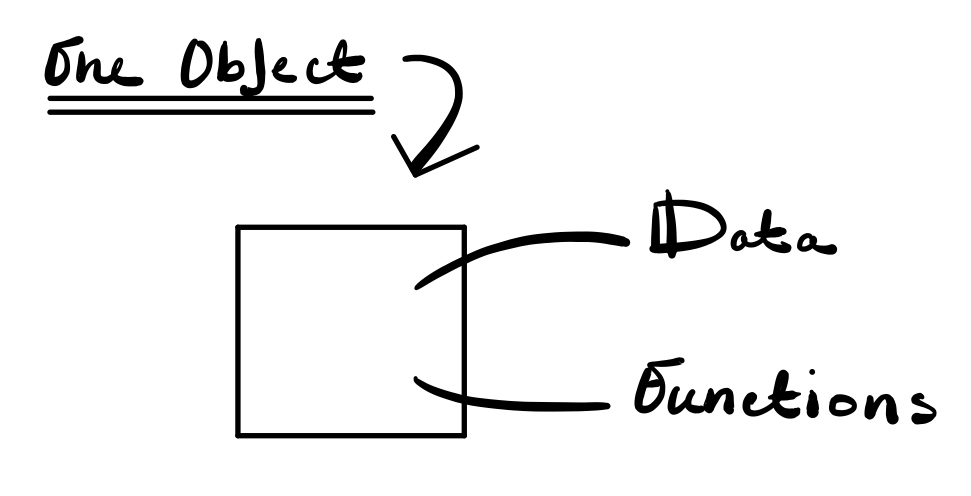 One Object
Data
Functions